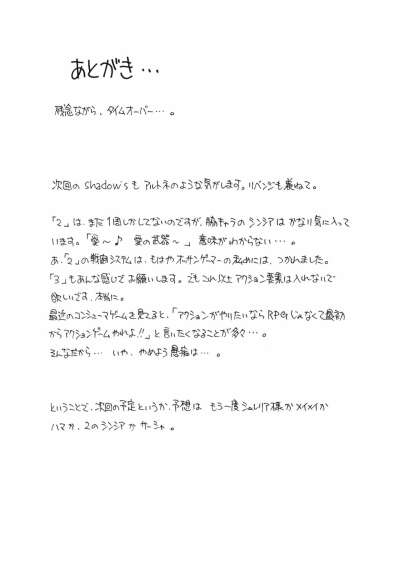 あとがき…
残念ながら、タイムオーバー…。
次回の shadow's も アルトネのような気がします。リベンジも兼ねて。
「2」は、まだ1周しかしてないのですが、脇キャラの シンシア は かなり気に入って
います。「愛～♪ 愛の武器～」 意味がわからない…。
あ、「2」の戦闘システムは、もはやオッサンゲーマーの私めには、つかれました。
「3」もあんな感じで お願いします。でもこれ以上アクション要素は入れないで
欲しいです、本当に。
最近のコンシューマゲームを見てると、「アクションがやりたいなら RPGじゃなくて最初
からアクションゲームやれよ!!」と言いたくなることが多く…。
そんなだから… いや、やめよう愚痴は…。
ということで、次回の予定というか、予想は もう一度シュレリア様か メイメイか
ハマか、2のシンシア か サーシャ。